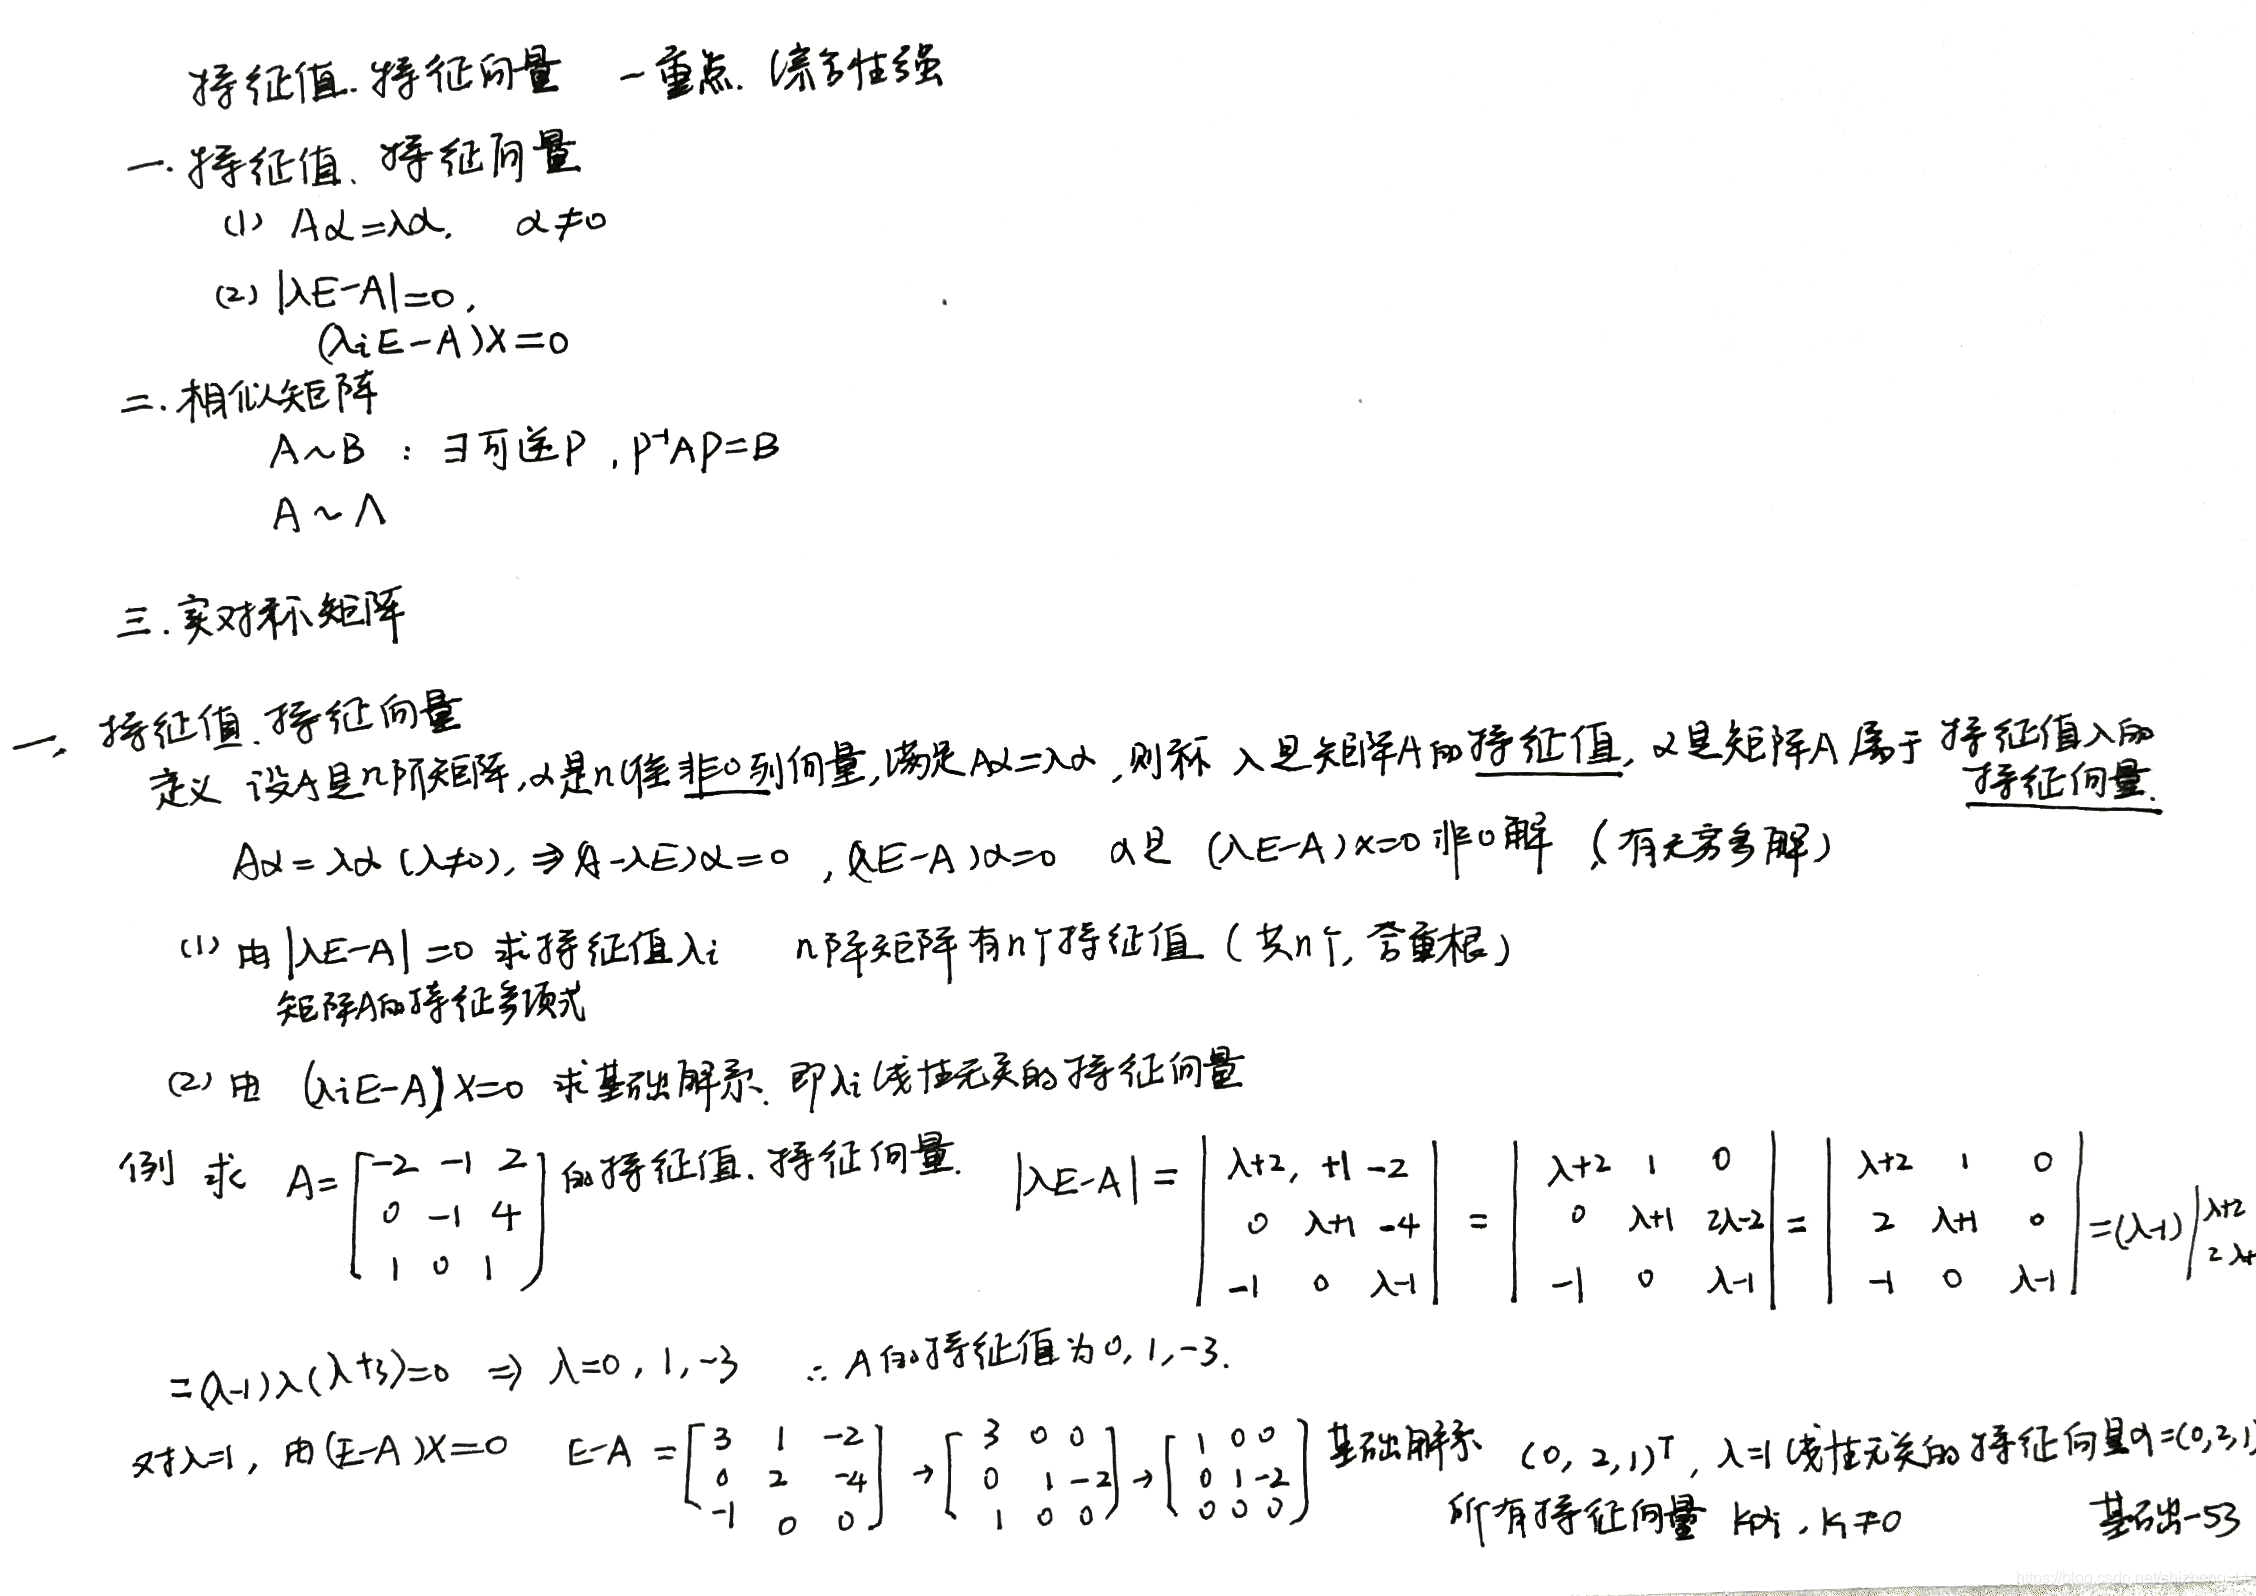 特征值.特征向量 —重点.综合性强
一.特征值、特征向量
(1) Aα=λα, α≠0
(2) |λE-A|=0,
(λiE-A)X=0
二.相似矩阵
A~B : ∃可逆P, P⁻¹AP=B
A~Λ
三.实对称矩阵
一、特征值、特征向量
定义 设A是n阶矩阵,α是n维非0列向量,满足Aα=λα,则称 λ是矩阵A的特征值, α是矩阵A属于特征值λ的
特征向量.
Aα=λα (λ≠0), ⇒(A-λE)α=0 , (λE-A)α=0 α是 (λE-A)x=0非0解 (有无穷多解)
(1) 由|λE-A|=0 求特征值λi n阵矩阵有n个特征值 (共n个,含重根)
矩阵A的特征多项式
(2) 由 (λiE-A)X=0 求基础解系、即λi线性无关的特征向量
例 求 A=[-2 -1 2; 0 -1 4; 1 0 1]的特征值.特征向量. |λE-A|=|λ+2, +1 -2; 0 λ+1 -4; -1 0 λ-1|=|λ+2 1 0; 0 λ+1 2λ-2; -1 0 λ-1|=|λ+2 1 0; 2 λ+1 0; -1 0 λ-1|=(λ-1)|λ+2 2 λ+
=(λ-1)λ(λ+3)=0 ⇒ λ=0, 1, -3 ∴A的特征值为0, 1, -3.
对λ=1, 由(E-A)X=0 E-A=[3 1 -2; 0 2 -4; -1 0 0]→[3 0 0; 0 1 -2; 1 0 0]→[1 0 0; 0 1 -2; 0 0 0] 基础解系 (0, 2, 1)ᵀ, λ=1线性无关的特征向量α=(0,2,1)
所有特征向量 kαi, k≠0 基础-53